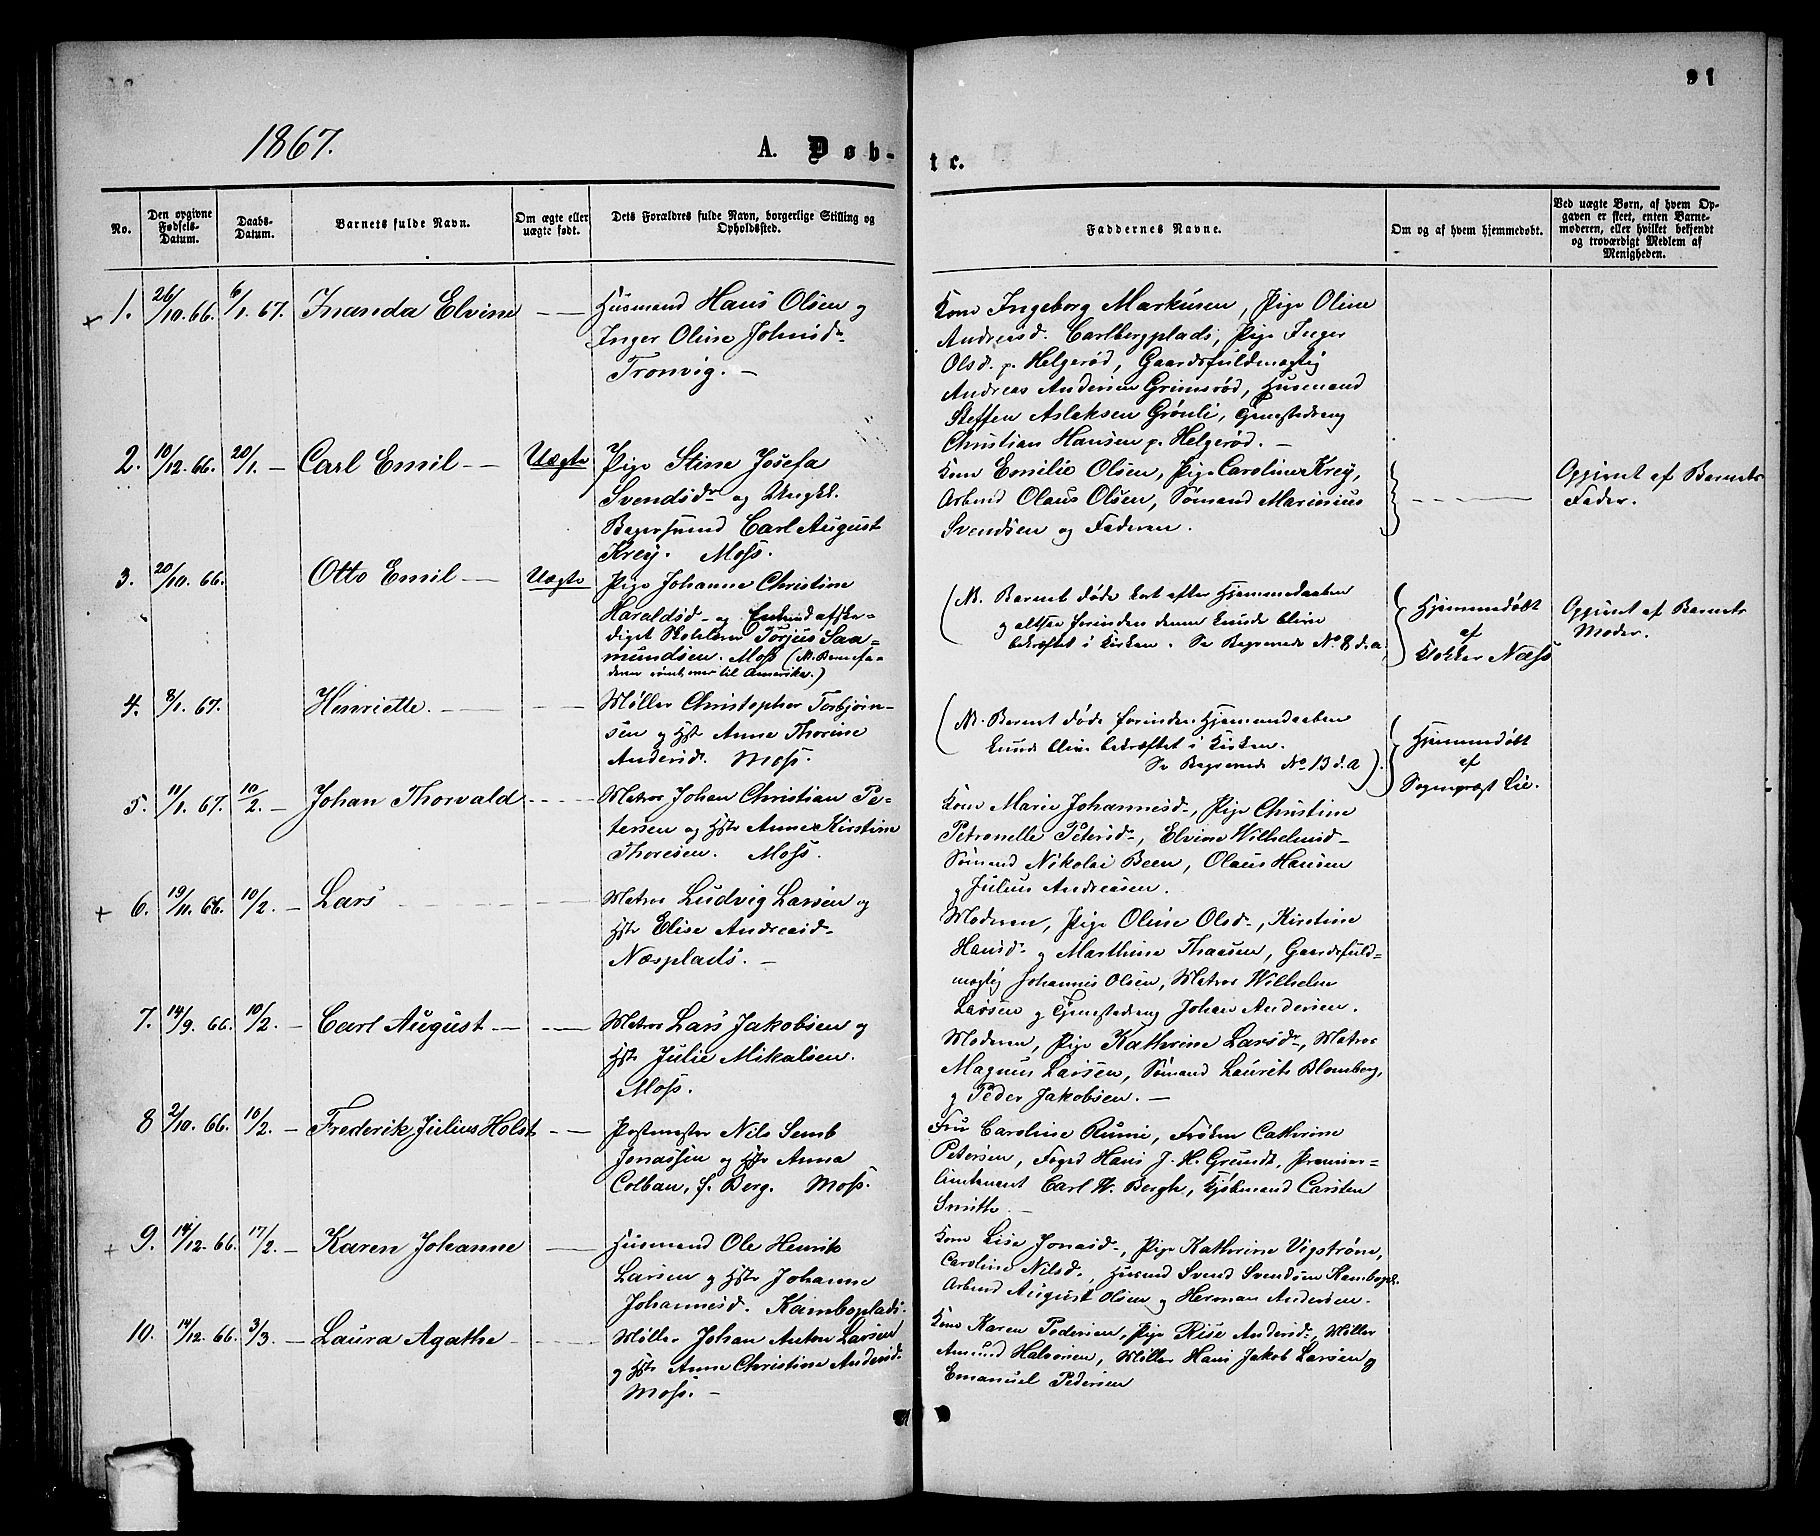 91
1867.
A. Døb-
te.
No.
Den opgivne Fødsels-Datum.
Daabs-Datum.
Barnets fulde Navn.
Om ægte eller uægte født.
Dets Forældres fulde Navn, borgerlige Stilling og Opholdssted.
Faddernes Navne.
Om og af hvem hjemmedøbt.
Ved uægte Børn, af hvem Opgaven er skeet, enten Barnemoderen, eller hvilket bekjendt og troværdigt Medlem af Menigheden.
+ 1. 26/10. 66. 6/1. 67. Inanda Elvine — —
Husmand Hans Olsen og
Inger Oline Johnsd.
Tronvig. —
Kone Ingeborg Markusen, Pige Oline
Andreasd. Carlbergplads, Pige Inger
Olsd. p. Helgerød, Gaardsfuldmægtig
Andreas Andersen Grimsrød, Husmand
Steffen Aslaksen Grønli, Tjenestedreng
Christian Hansen p. Helgerød. —
2. 10/12. 66. 20/1. — Carl Emil — — Uægte
Pige Stine Josefa
Svendsdr. og Ungkl.
Bagersvend Carl August
Krey. Moss.
Kone Emilie Olsen, Pige Caroline Krey,
Arbmd Olaus Olsen, Sømand Marinius
Svendsen og Faderen.
Opgivet af Barnets
Fader.
3. 20/10. 66. Otto Emil — — Uægte
Pige Johanne Christine
Haraldsd. og Enkemd afske-
diget Skolelærer Torjus Saa-
mundsen. Moss (N. Barnefa-
deren rømt over til Amerika.)
(N. Barnet døde kort efter Hjemmedaaben
og altsaa forinden denne kunde blive
bekræftet i Kirken. Se Begravede No. 8 d. a.
Hjemmedøbt
af
Klokker Næss
Opgivet af Barnets
Moder.
4. 8/1. 67. Henriette. — — —
Møller Christopher Torbjørn-
sen og Hst Anne Thorine
Andersd. Moss.
(N. Barnet døde forinden Hjemmedaaben
kunde blive bekræftet i Kirken.
Se Begravede No. 13 d. a).
Hjemmedøbt
af
Sogneprest Lie.
5. 11/1. 67. 10/2. — Johan Thorvald — — —
Matros Johan Christian Pe-
tersen og Hst Anne Kirstine
Thoresen. Moss.
Kone Marie Johannesd., Pige Christine
Petronelle Petersd., Elvine Wilhelmsd.
Sømand Nikolai Been, Olaus Hansen
og Julius Andreasen.
+ 6. 19/11. 66. 10/2. — Lars — — —
Matros Ludvig Larsen og
Hst Elise Andreasd.
Næsplads. —
Moderen, Pige Oline Olsd., Kirstine
Hansd. og Marthine Thaasen, Gaardsfuld-
mægtig Johannes Olsen, Matros Wilhelm
Larsen og Tjenestedreng Johan Andersen.
7. 14/9. 66. 10/2. — Carl August — — —
Matros Lars Jakobsen og
Hst Julie Mikalsen.
Moss.
Moderen, Pige Kathrine Larsdr., Matros
Magnus Larsen, Sømand Laurits Blomberg,
og Peder Jakobsen. —
8 2/10. 66. 10/2. — Frederik Julius Holst — —
Postmester Nils Semb
Jonassen og Hst Anna
Colban, f. Berg. Moss.
Fru Caroline Rumi, Frøken Cathrine
Petersen, Foged Hans J. H. Grundt, Premier-
lieutenant Carl W. Bergh, Kjøbmand Carsten
Smith. —
+ 9. 14/12. 66. 17/2. — Karen Johanne —
Husmand Ole Henrik
Larsen og Hst Johanne
Johannesd. Kamboplads.
Kone Lise Jonasd., Pige Kathrine Vigstrøm,
Caroline Nilsd., Husmd Svend Svendsen Kambopl.
Arbmd August Olsen og Herman Andersen.
10. 14/12. 66. 3/3. — Laura Agathe —
Møller Johan Anton Larsen
og Hst Anne Christine Andersd.
Moss. —
Kone Karen Pedersen, Pige Rise Andersd., Møller
Amund Halvorsen, Møller Hans Jakob Larsen og
Emanuel Pedersen